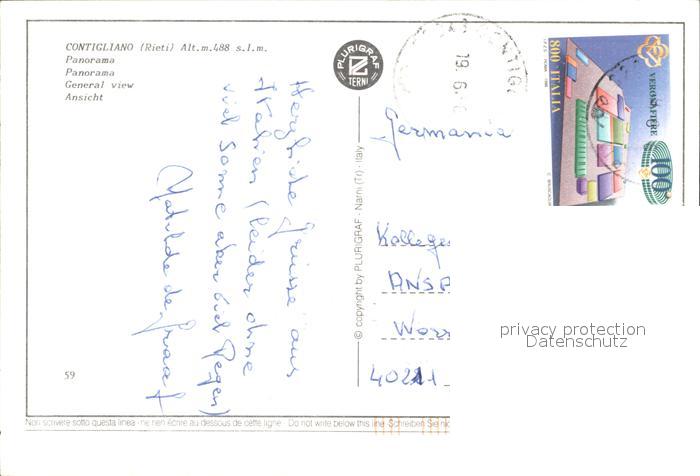 CONTIGLIANO (Rieti) Alt.m.488 s.l.m.
Panorama
Panorama
General view
Ansicht
PLURIGRAF
TERNI
19.6.
800 ITALIA
VERONAFIERE
100
Germania
Herzliche Grüsse aus
Italien (leider ohne
viel Sonne aber viel Regen)
Matilde de Graaf
© copyright by PLURIGRAF - Narni (Tr) - Italy
Kollege
ANSA
Worr
40211
privacy protection
Datenschutz
59
Non scrivere sotto questa linea - ne rien écrire au dessous de cette ligne - Do not write below this line - Schreiben Sie nic